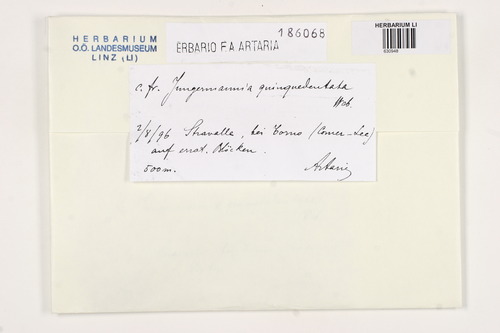 HERBARIUM
O.Ö. LANDESMUSEUM
LINZ (LI)
ERBARIO F.A ARTARIA
186068
HERBARIUM LI
c. fr. Jungermannia quinquedentata
2/8/96 Stravalle, bei Torno (Comer-See)
auf errat. Blöcken.
500m. Artaria